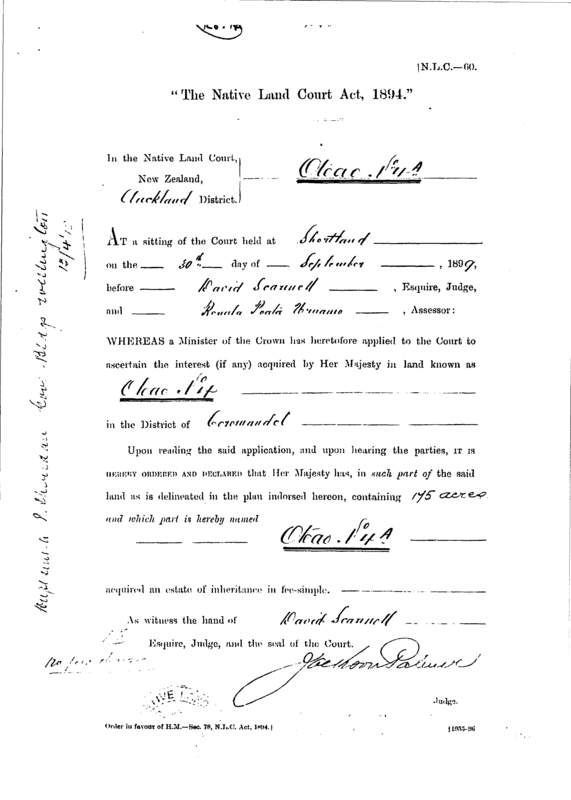 [N.L.C.—60.
"The Native Land Court Act, 1894."
In the Native Land Court,
New Zealand,
Auckland District.
Otao No 4A
AT a sitting of the Court held at Shortland
on the 30th day of September, 1897,
before David Scannell, Esquire, Judge,
and, Assessor:
WHEREAS a Minister of the Crown has heretofore applied to the Court to
ascertain the interest (if any) acquired by Her Majesty in land known as
Otao No 4
in the District of Coromandel
Upon reading the said application, and upon hearing the parties, IT IS
HEREBY ORDERED AND DECLARED that Her Majesty has, in such part of the said
land as is delineated in the plan indorsed hereon, containing 175 acres
and which part is hereby named
Otao No 4A
acquired an estate of inheritance in fee-simple.
As witness the hand of David Scannell
Esquire, Judge, and the seal of the Court.
Judge.
Order in favour of H.M.—Sec. 78, N.L.C. Act, 1894.]